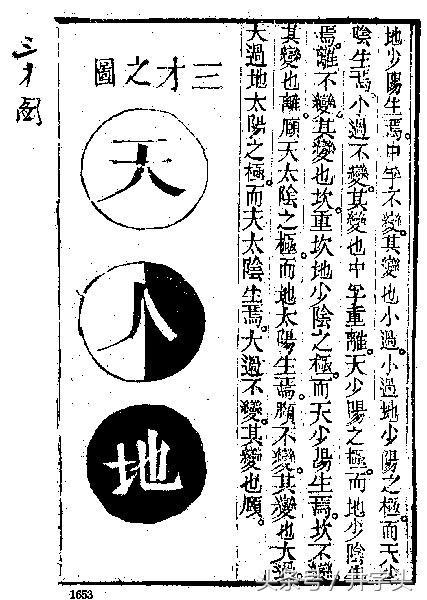 地少陽生焉。中孚不變。其變也小過。小過地少陽之極。而天少
陰生焉。小過不變。其變也中孚。重離天少陽之極。而地少陰生
焉。離不變。其變也坎。重坎地少陰之極。而天少陽生焉。坎不變
其變也離。頤天太陰之極。而地太陽生焉。頤不變。其變也大過。
大過地太陽之極而天太陰生焉。大過不變。其變也頤。
三才之圖
天
人
地
三才図
1653
头条号/开字头